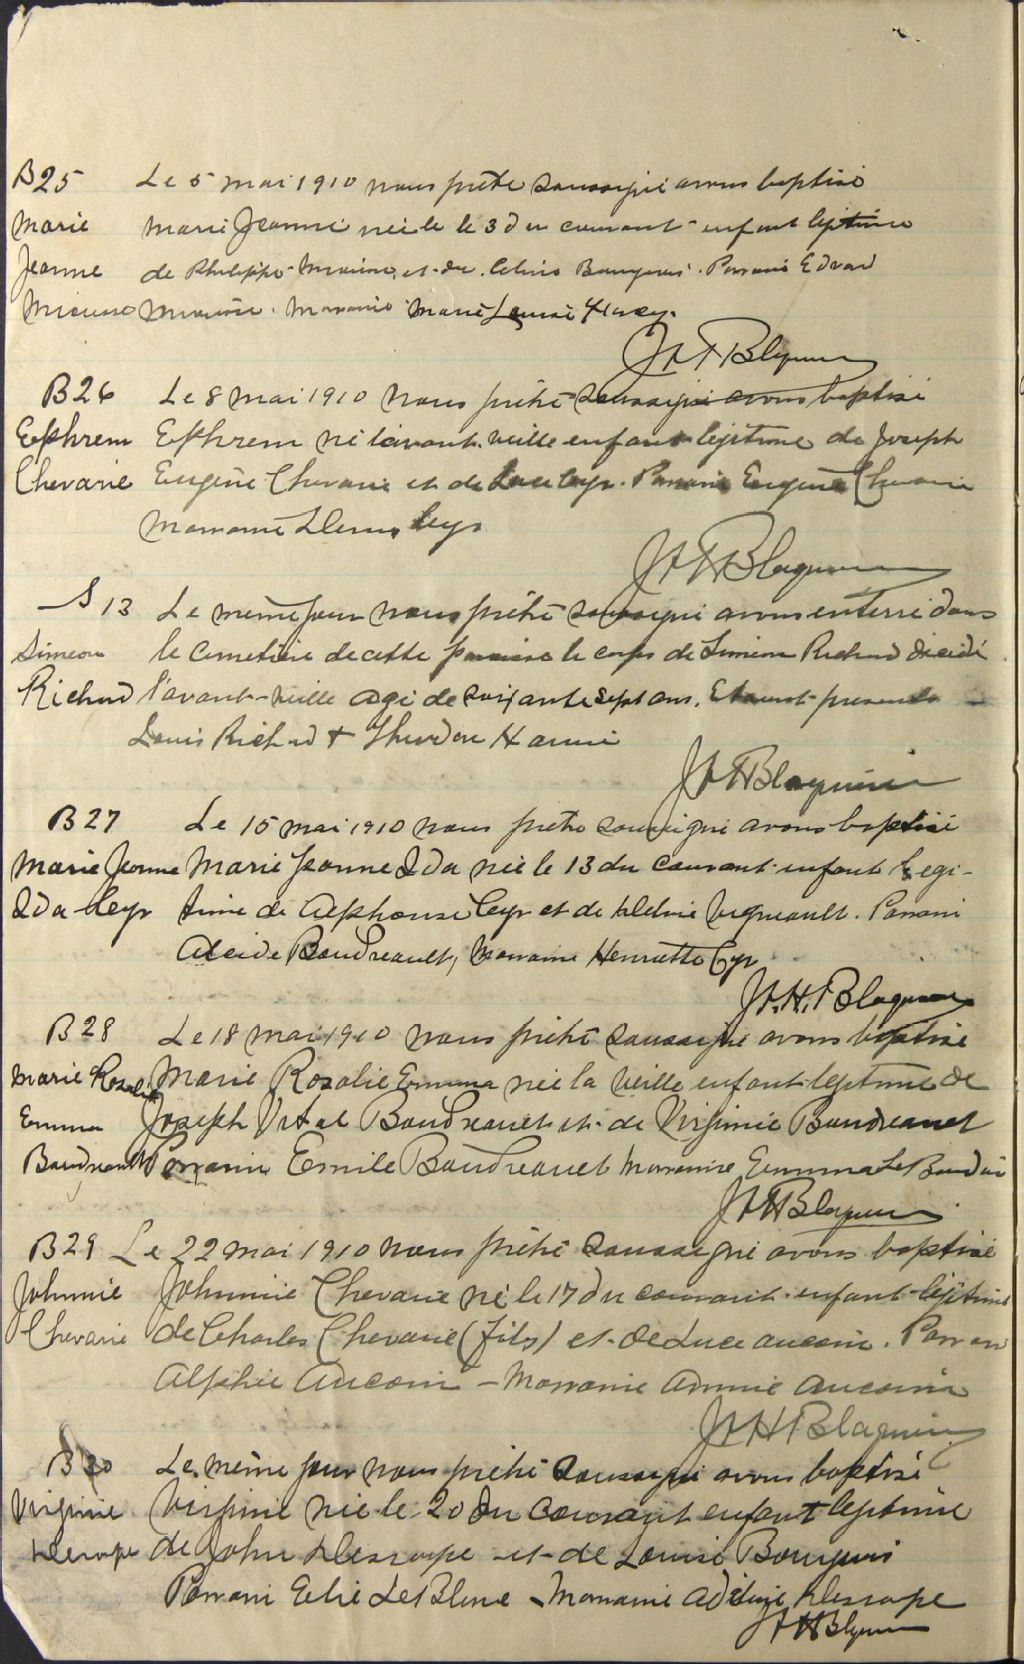 B25 Le 5 mai 1910 nous prêtre soussigné avons baptisé
Marie Marie Jeanne née le 3 du courant enfant légitime
Jeanne de Philippe et de Bourgeois. Parrain Edward
Marraine Marie Louise
J A H Blaquiere
B26 Le 8 mai 1910 nous prêtre soussigné avons baptisé
Ephrem Ephrem né l'avant-veille enfant légitime de Joseph
Chevarie Eugène Chevarie et de Luce Cyr. Parrain Eugène Chevarie
Marraine Cyr
J A H Blaquiere
S 13 Le même jour nous prêtre soussigné avons enterré dans
Simeon le cimetière de cette paroisse le corps de Simeon Richard décédé
Richard l'avant-veille agé de soixante sept ans. Etaient présents
Louis Richard +
J A H Blaquiere
B27 Le 15 mai 1910 nous prêtre soussigné avons baptisé
Marie Jeanne Marie Jeanne Ida née le 13 du courant enfant legi-
Ida Cyr time de Alphonse Cyr et de Vigneault. Parrain
Alcide Boudreault, Marraine Henriette Cyr
J A. H. Blaquiere
B28 Le 18 mai 1910 nous prêtre soussigné avons baptisé
Marie Rosalie Marie Rosalie Emma née la veille enfant légitime de
Emma Joseph Vital Boudreault et de Virginie Boudreault
Boudreault Parrain Emile Boudreault Marraine Emma
J A H Blaquiere
B29 Le 22 mai 1910 nous prêtre soussigné avons baptisé
Johnnie Johnnie Chevarie né le 17 du courant enfant légitime
Chevarie de Charles Chevarie (fils) et de Luce Aucoin. Parrain
Alphée Aucoin - Marraine Annie Aucoin
J A H Blaquiere
B30 Le même jour nous prêtre soussigné avons baptisé
Virginie Virginie née le 20 du courant enfant légitime
Deraspe de John Deraspe et de Louise Bourgeois
Parrain Elie LeBlanc - Marraine Deraspe
J A H Blaquiere